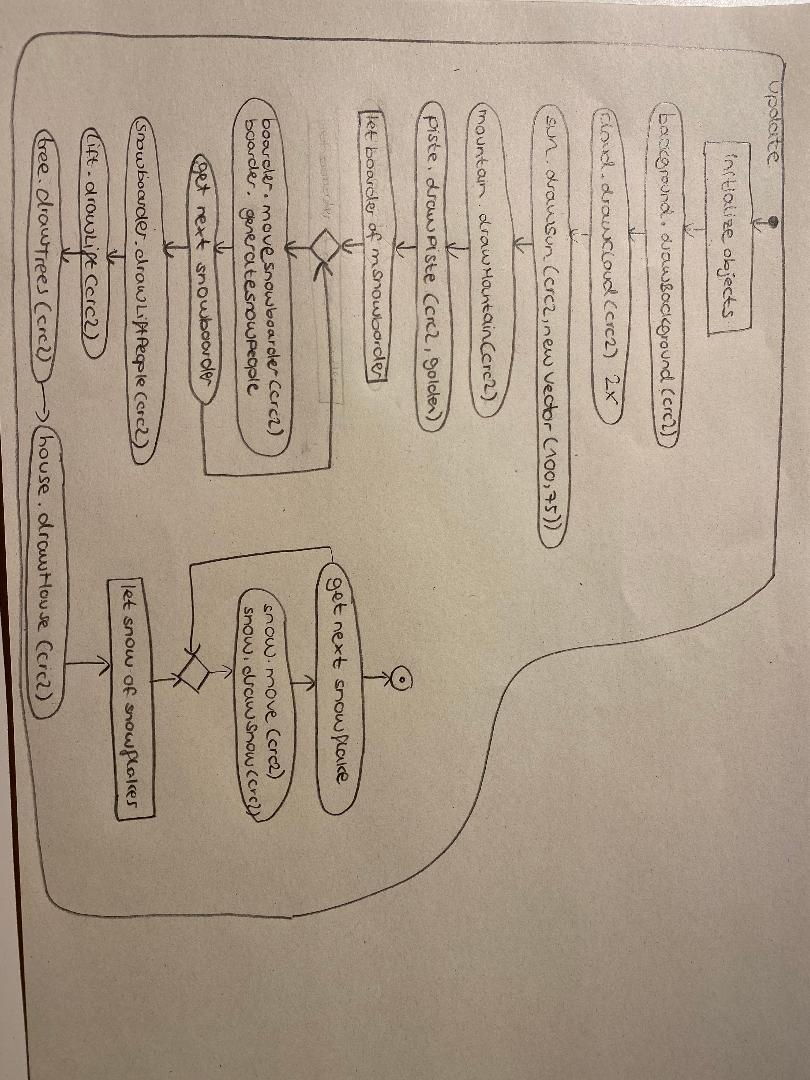 update
initialize objects
background.drawBackground(crc2)
cloud.drawCloud(crc2) 2x
sun.drawSun(crc2, new vector(100,75))
mountain.drawMantain(crc2)
piste.drawPiste(crc2, golden)
let boarder of msnowborder
boarder.movesnowboarder(crc2)
boarder.generatesnowPeople
get next snowboarder
snowboarder.drawLiftPeople(crc2)
lift.drawLift(crc2)
tree.drawTrees(crc2)
house.drawHouse(crc2)
let snow of snowflakes
snow.move(crc2)
snow.drawSnow(crc2)
get next snowflake